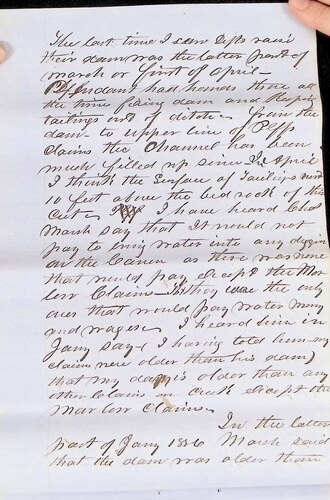 The last time I seen Defts raise
their dam was the latter part of
march or first of April —
Defendant had hands there all
the time fixing dam and keeping
tailings out of ditch. From the
dam to upper line of Plffs
claims the channel has been
much filled up since in April
I think the surface of tailings was
10 feet above the bed rock of this
Cut — I have heard Chas
Marsh say that it would not
pay to bring water into any diggings
on the Canon as there was none
that would pay except the Mar
low Claims — they were the only
ones that would pay water money
and wages. I heard him in
Jany say (I having told him my
claims were older than his dam)
that my was older than any
other claims on creek except the
Marlow Claims —
In the latter
part of Jany 1856 Marsh said
that the dam was older than